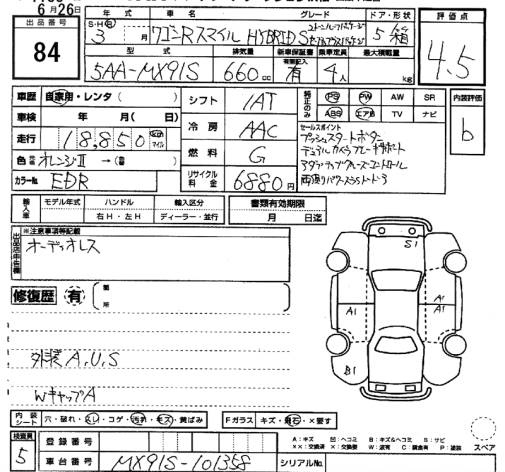 6月26日
出品番号
84
年式 車名 グレード ドア・形状
S・H・R
3 月 ワゴンRスマイル HYBRID S 5 箱
型式 排気量 新車保証書 有無記入 乗車定員 最大積載量
5AA-MX91S 660cc 有 4人 kg
評価点
4.5
内装評価
b
車歴 自家用・レンタ ( )
車検 年 月 ( 日)
走行 18,850 km マイル
色 オレンジII → (
カラーNo. EDR
シフト IAT
冷房 AAC
燃料 G
リサイクル料金 6880円
純正のみ PS PW AW SR
ABS エアB TV ナビ
セールスポイント
プッシュスタートボタン
デュアルカメラブレーキサポート
アダプティブクルーズコントロール
両側パワースライドドア
輸入車 モデル年式 ハンドル 輸入区分
右H・左H ディーラー・並行
書類有効期限
月 日迄
出品店申告欄
※注意事項等記載
オーディオレス
修復歴 有 箇所
外装A,U,S
WキャップA
S1
A1
A1
A1
B1
内装シート 穴・破れ・スレ・コゲ・汚れ・キズ・黄ばみ Fガラス キズ・飛石・×要す
検査員 5
登録番号
車台番号 MX91S-101358 シリアルNo.
A：キズ U：ヘコミ B：キズ&ヘコミ S：サビ
XX：交換済 X：交換要 W：波有 C：腐食有 P：塗装
スペア